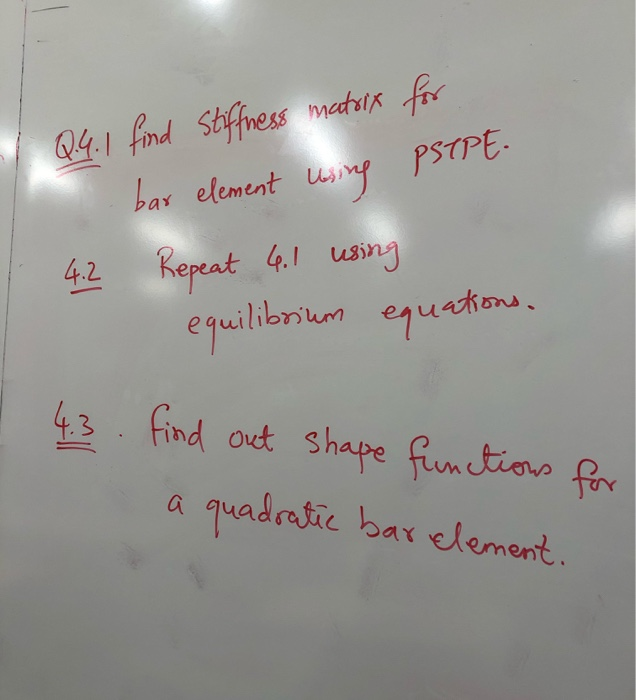 Q.4.1 find stiffness matrix for
bar element using PSTPE.
4.2 Repeat 4.1 using
equilibrium equations.
4.3. find out shape functions for
a quadratic bar element.